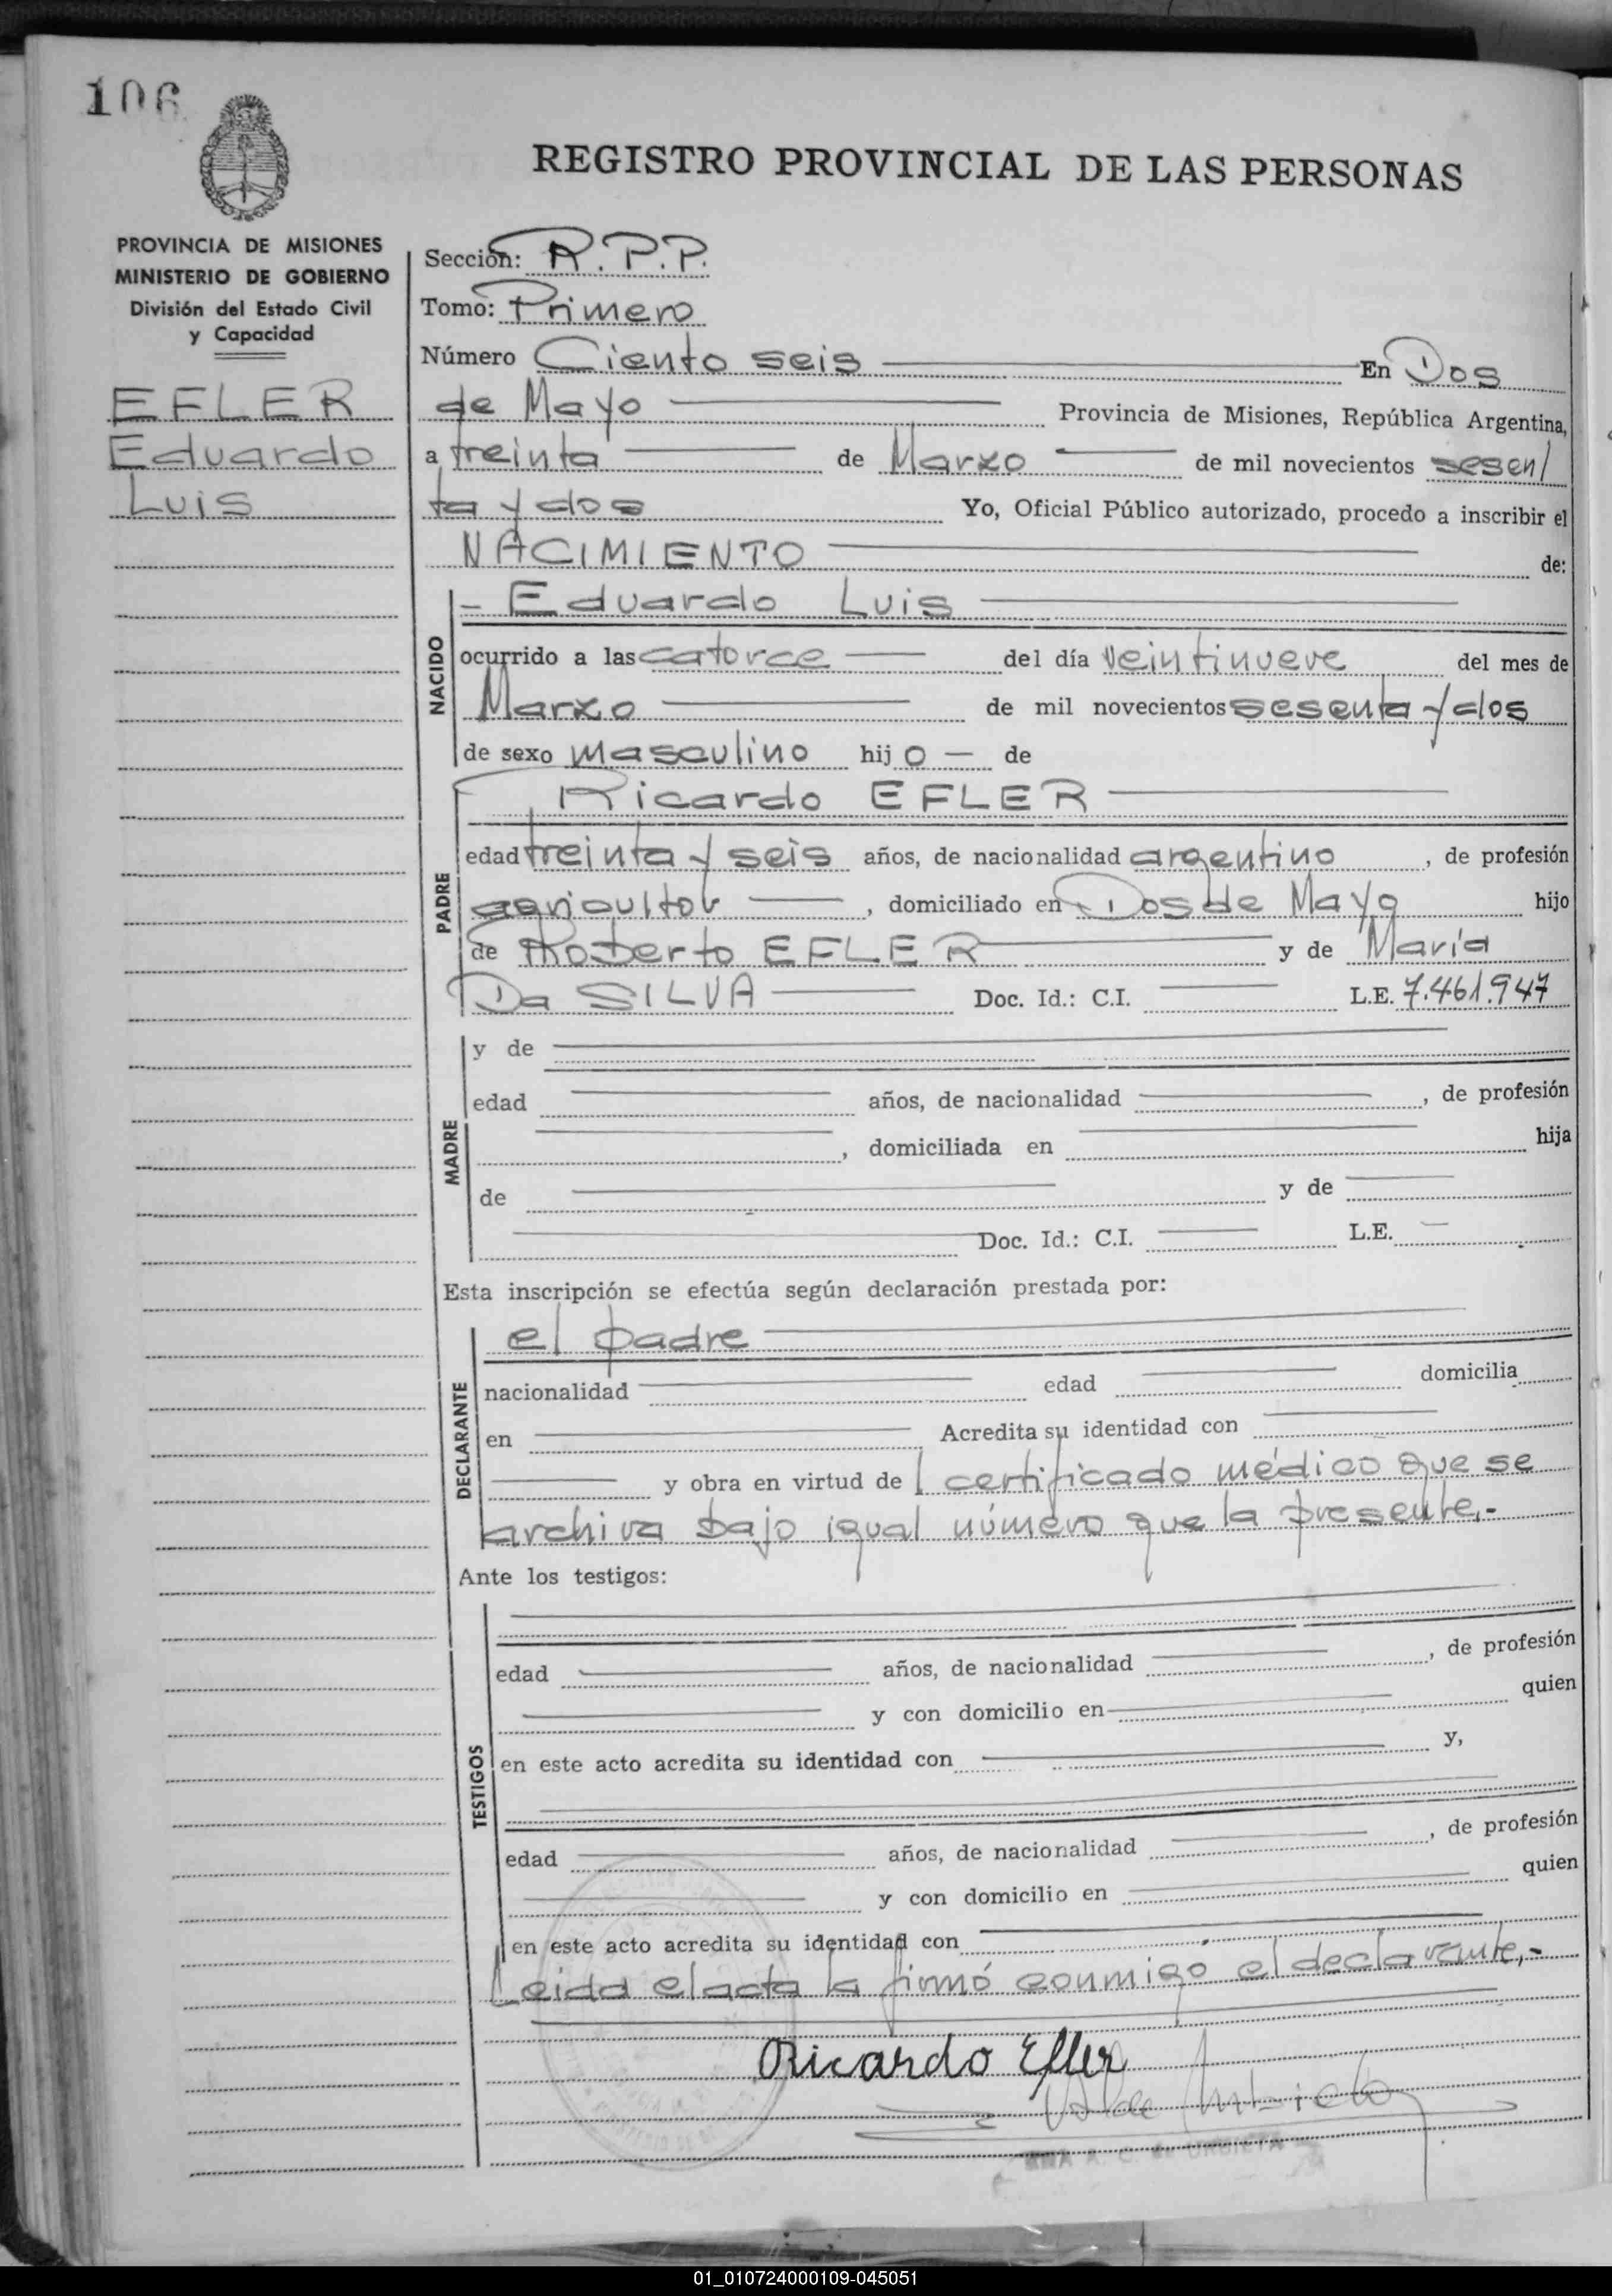 106
REGISTRO PROVINCIAL DE LAS PERSONAS
PROVINCIA DE MISIONES
MINISTERIO DE GOBIERNO
División del Estado Civil
y Capacidad
EFLER
Eduardo
Luis
Sección: R.P.P.
Tomo: Primero
Número Ciento seis En Dos
de Mayo Provincia de Misiones, República Argentina,
a treinta de Marzo de mil novecientos sesen/
ta y dos Yo, Oficial Público autorizado, procedo a inscribir el
NACIMIENTO de:
NACIDO
- Eduardo Luis
ocurrido a las catorce del día veintinueve del mes de
Marzo de mil novecientos sesenta y dos
de sexo masculino hijo de
PADRE
Ricardo EFLER
edad treinta y seis años, de nacionalidad argentino, de profesión
agricultor, domiciliado en Dos de Mayo hijo
de Roberto EFLER y de María
Da SILVA Doc. Id.: C.I. L.E. 7.461.947
MADRE
y de
edad años, de nacionalidad , de profesión
, domiciliada en hija
de y de
Doc. Id.: C.I. L.E.
Esta inscripción se efectúa según declaración prestada por:
DECLARANTE
el padre
nacionalidad edad domicilia
en Acredita su identidad con
y obra en virtud de certificado médico que se
archiva bajo igual número que la presente,-
Ante los testigos:
TESTIGOS
edad años, de nacionalidad , de profesión
y con domicilio en quien
en este acto acredita su identidad con y,
edad años, de nacionalidad , de profesión
y con domicilio en quien
en este acto acredita su identidad con
Leida el acta la firmó conmigo el declarante,-
Ricardo Efler
A. C. de URBIETA
01_010724000109-045051